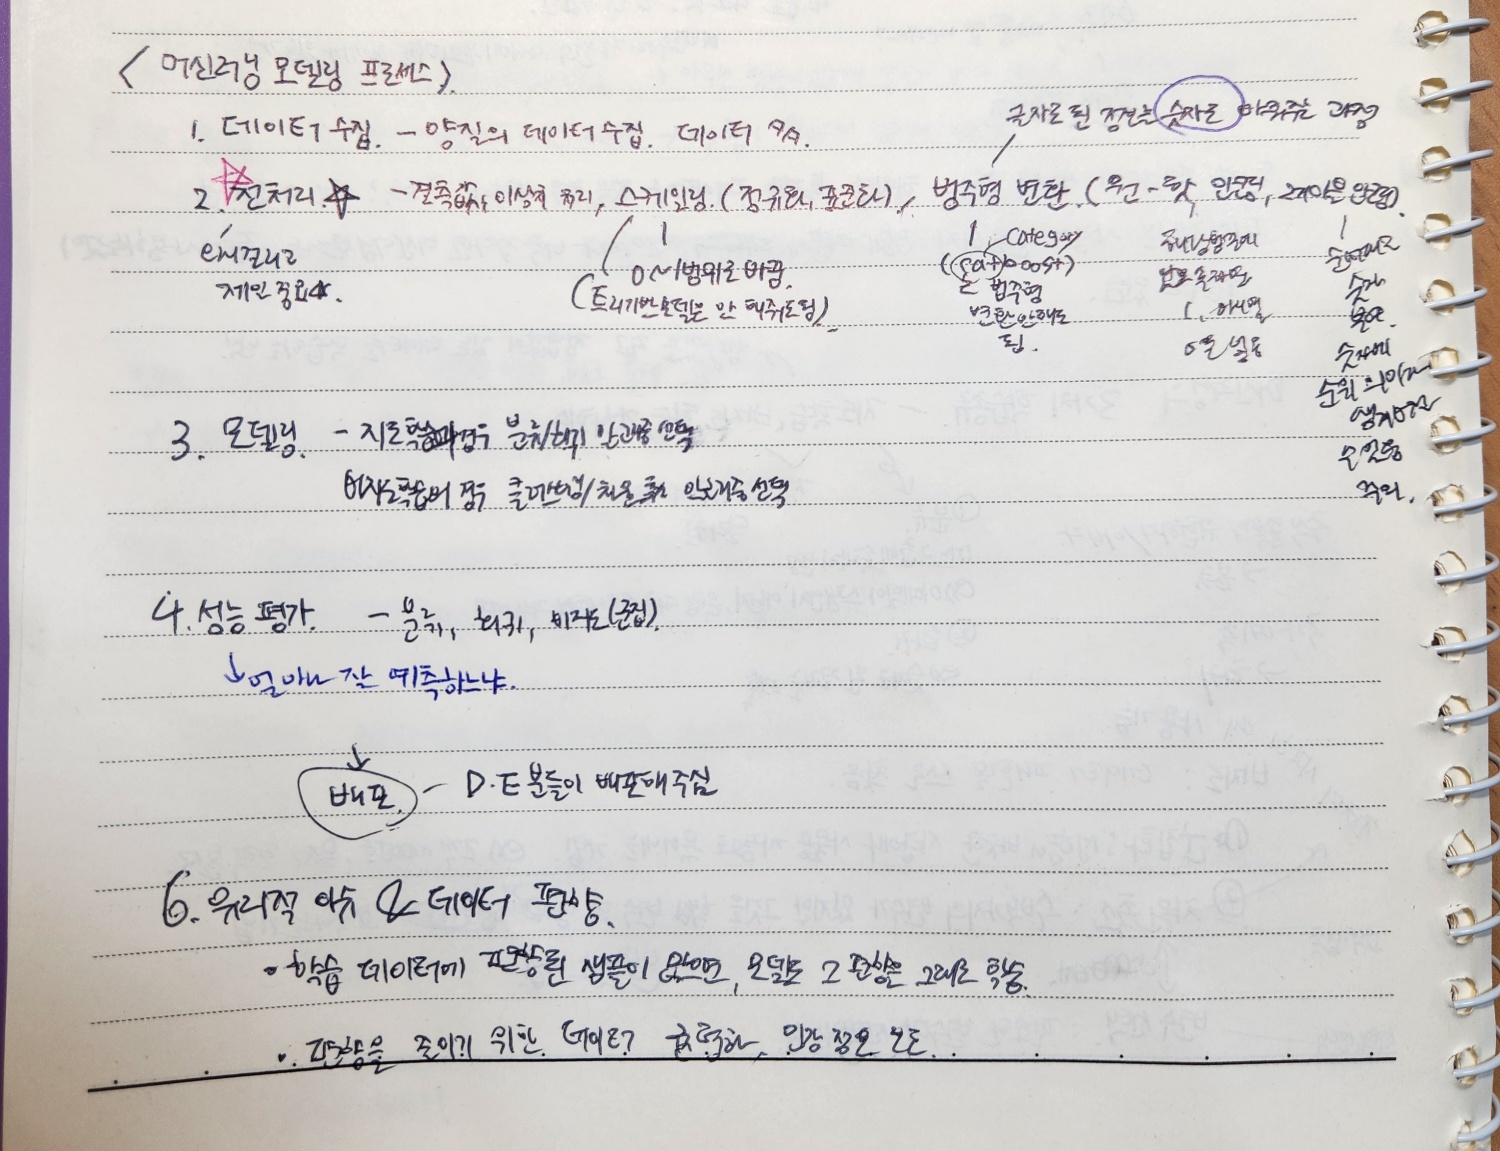 < 머신러닝 모델링 프로세스 >.
글자로 된 정보는 숫자로 바꿔주는 과정
1. 데이터 수집. - 양질의 데이터 수집. 데이터
2. 전처리 - 결측값, 이상치 처리, 스케일링. (정규화, 표준화), 범주형 변환. (원-핫 인코딩, 레이블 인코딩).
제일 중요.
0~1 범위로 바꿈.
(트리기반 모델은 안 해줘도 됨)
category
(catboost)
는 범주형
변환 안해도
됨.
해당 범주에
1, 아니면
0을 넣음
숫자
부여.
숫자에
순위 의미가
생기므로
주의.
3. 모델링. - 지도학습의 경우 분류/회귀 알고리즘 선택
비지도학습의 경우 클러스터링/차원 축소 알고리즘 선택
4. 성능 평가. - 분류, 회귀, 비지도(군집).
↓ 얼마나 잘 예측하느냐.
↓
배포. - D.E 분들이 배포해 주심
6. 윤리적 이슈 & 데이터 편향.
• 학습 데이터에 편향된 샘플이 많으면, 모델도 그 편향을 그대로 학습.
• 편향을 줄이기 위한 데이터 균형화, 민감 정보